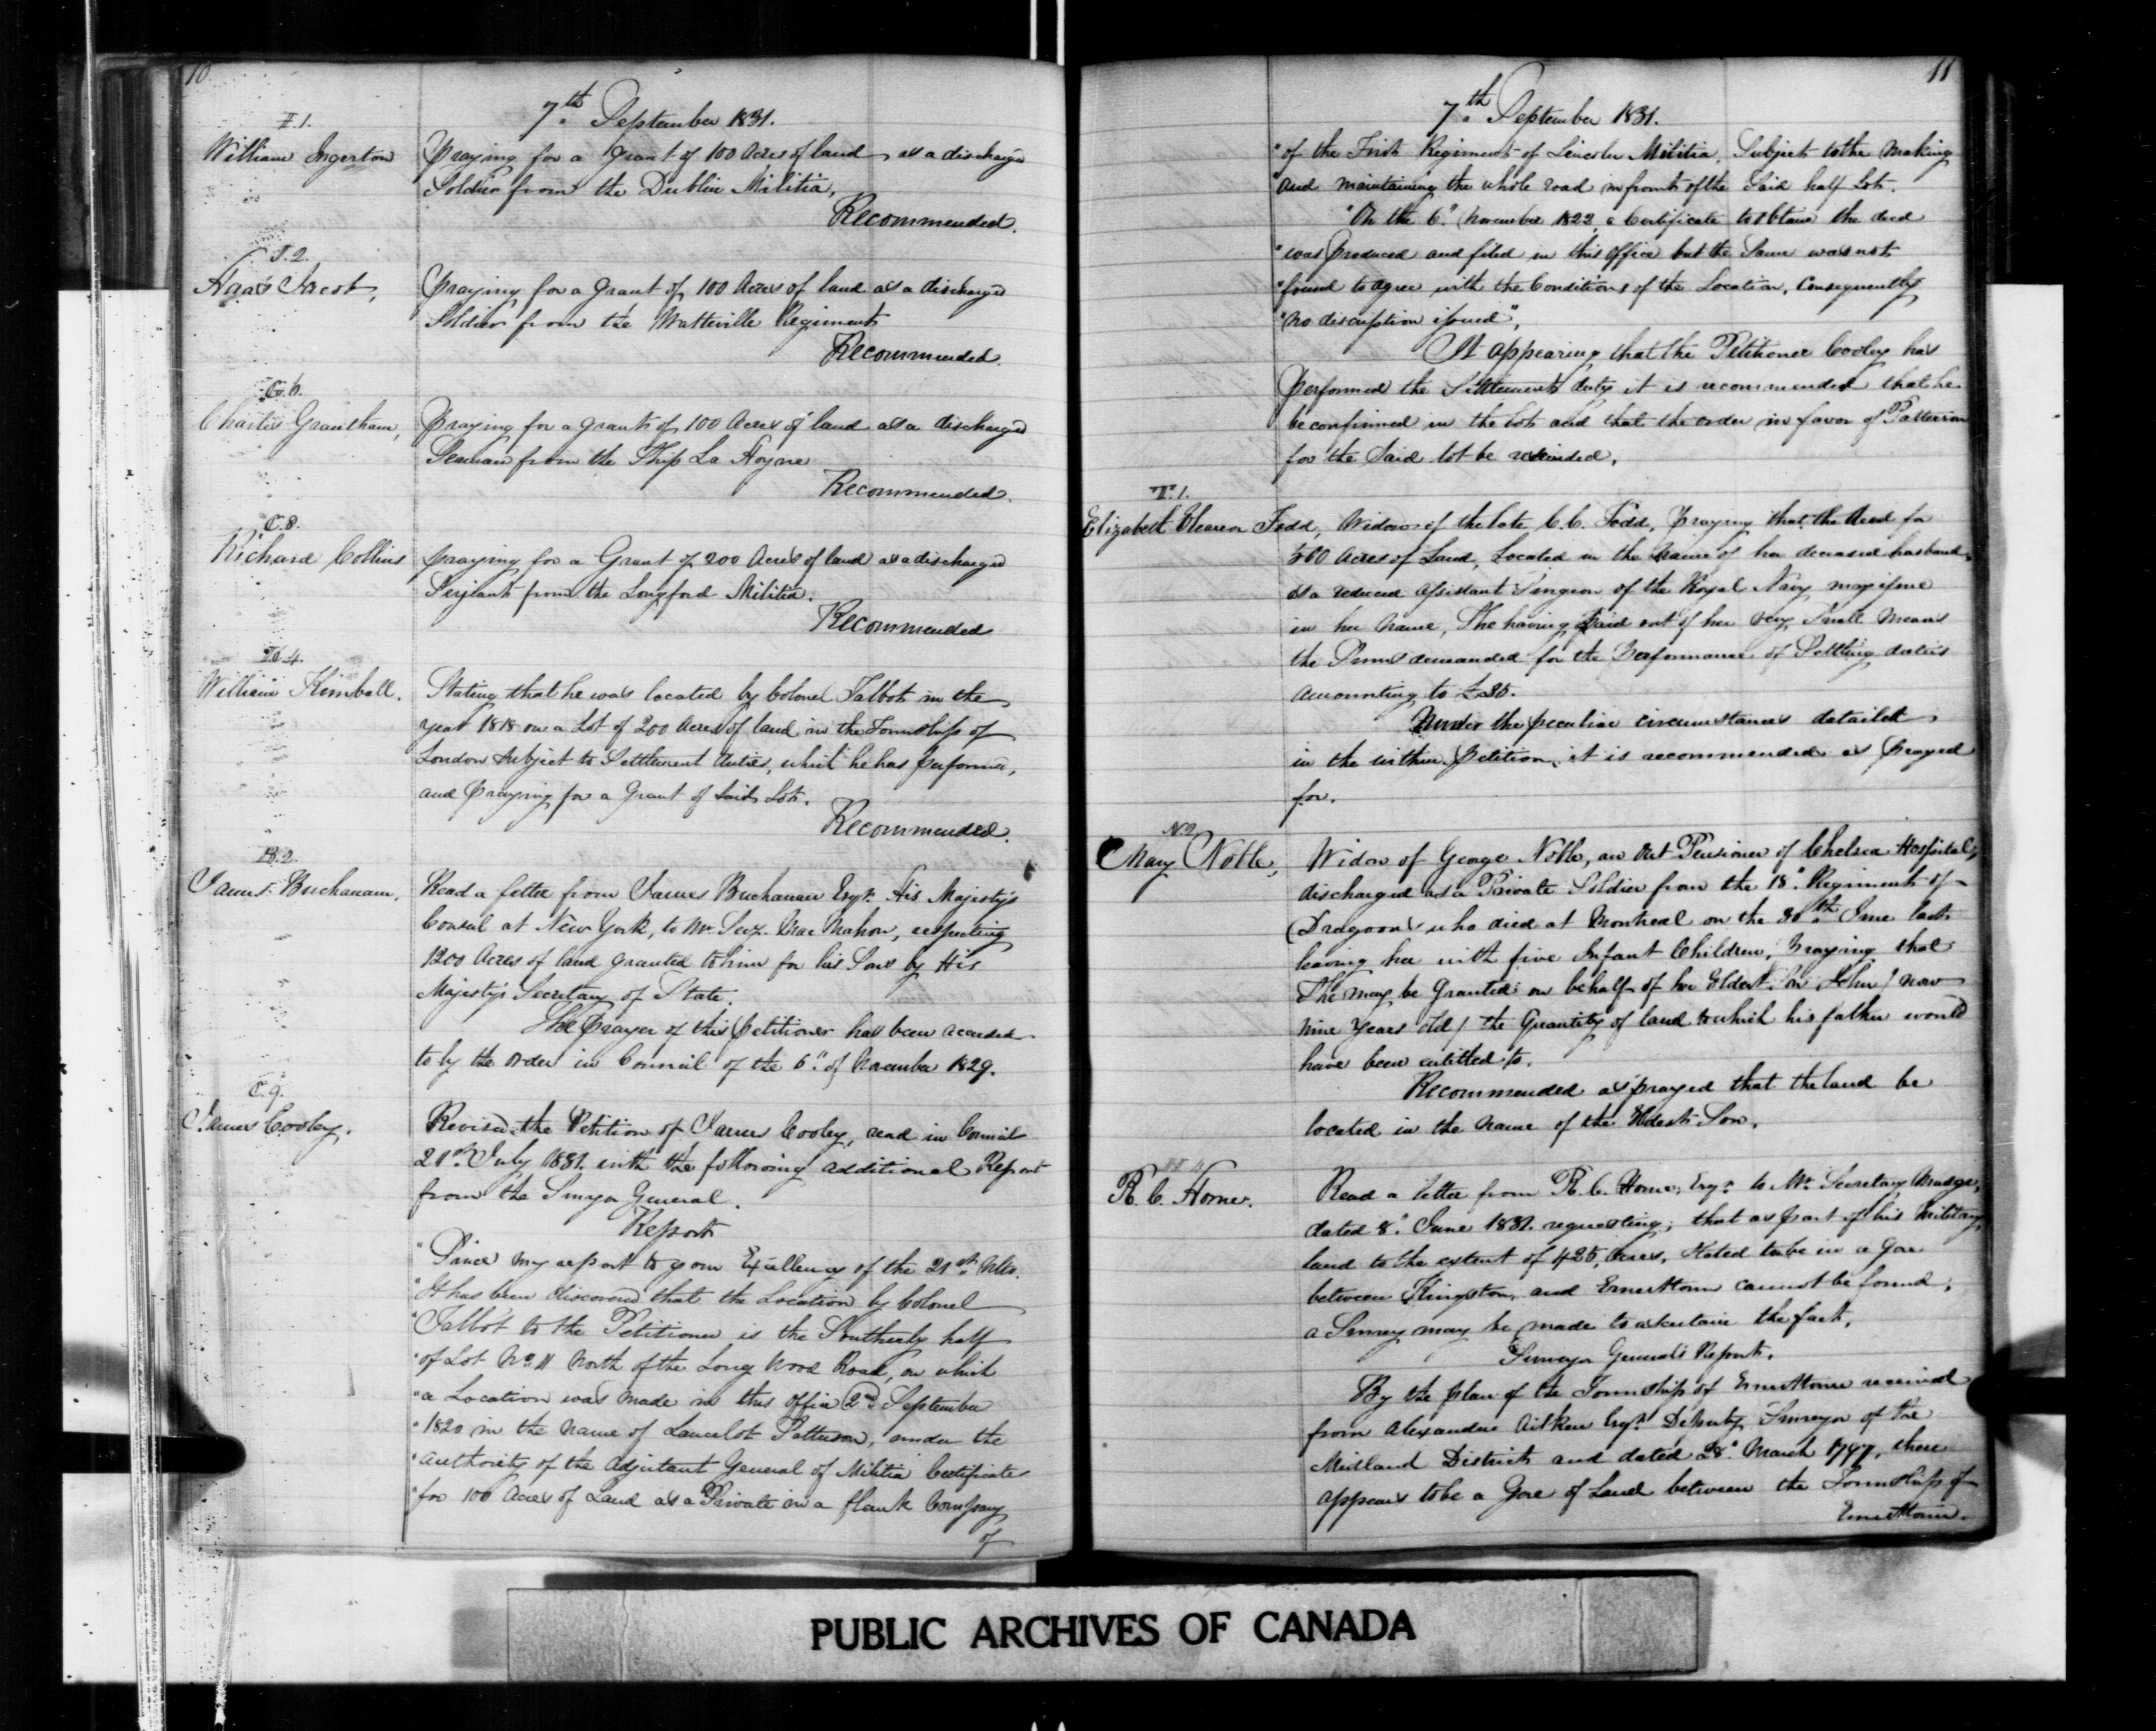 10
7th September 1831.
I.1.
William Ingerton
Praying for a Grant of 100 Acres of land as a discharged
Soldier from the Dublin Militia.
Recommended.
J.2.
Jacob,
Praying for a Grant of 100 Acres of land as a discharged
Soldier from the Watteville Regiment
Recommended.
G.6.
Charles Grantham,
Praying for a grant of 100 Acres of land as a discharged
Seaman from the Ship La Hogue
Recommended.
C.8.
Richard Collins
praying for a Grant of 200 Acres of land as a discharged
Serjeant from the Longford Militia.
Recommended
K.4.
William Kimball.
Stating that he was located by Colonel Talbot in the
year 1818 on a Lot of 200 Acres of land in the Township of
London subject to Settlement duties, which he has performed,
and Praying for a Grant of said Lot.
Recommended.
B.2.
James Buchanan.
Read a letter from James Buchanan Esqr. His Majesty's
Consul at New York, to Mr. Secy. Mac Mahon, respecting
1200 Acres of land granted to him for his Sons by His
Majesty's Secretary of State.
The Prayer of this petitioner has been acceded
to by the order in Council of the 6" of November 1829.
C.9.
James Cooley.
Revised the Petition of James Cooley, read in Council
21st July 1831. with the following additional Report
from the Surveyor General.
Report
"Since my report to your Excellency of the 21st Ulto.
"It has been discovered that the Location by Colonel
"Talbot to the Petitioner is the Southerly half
"of Lot No. 11 North of the Long Wood Road, on which
"a Location was made in this office 2nd September
"1820 in the name of Lancelot Patterson, under the
"authority of the Adjutant General of Militia Certificate
"for 100 Acres of Land as a Private in a flank Company
of
11
7th September 1831.
"of the First Regiment of Lincoln Militia, Subject to the Making
"and maintaining the whole road in front of the Said half Lot.
"On the 6" November 1822, a Certificate to obtain the deed
"was produced and filed in this office but the Same was not
"found to agree with the Conditions of the Location, Consequently
"no discription issued",
It appearing that the Petitioner Cooley has
performed the Settlement duty it is recommended that he
be confirmed in the lot and that the order in favor of Patterson
for the Said lot be rescinded.
T.1.
Elizabeth Eleanor Todd, Widow of the late C.C. Todd, Praying that the deed for
500 Acres of Land, Located in the name of her deceased husband,
as a reduced Assistant Surgeon of the Royal Navy may issue
in her name, She having paid out of her very Small Means
the Sums demanded for the Performance of Settling duties
amounting to
Under the peculiar circumstances detailed
in the within Petition, it is recommended as prayed
for.
N.2
Mary Noble,
Widow of George Noble, an Out Pensioner of Chelsea Hospital,
discharged as a Private Soldier from the 18" Regiment of
Dragoons who died at Montreal on the 30th June last
leaving her with five Infant Children, Praying that
She may be Granted on behalf of her Eldest Son John / now
nine years old / the Quantity of land to which his father would
have been entitled to.
Recommended as prayed that the land be
located in the name of the Eldest Son.
R. C. Horne.
Read a letter from R. C. Horne, Esqr. to Mr. Secretary Mudge,
dated 8" June 1831. requesting, that as part of his Military
land to the extent of 425 Acres, Stated to be in a Gore
between Kingston, and Ernesttown cannot be found,
a Survey may be made to ascertain the fact.
Surveyor General's Report.
By the plan of the Township of Ernesttown received
from Alexander Aitken Esqr. Deputy Surveyor of the
Midland District and dated 28" March 1797, there
appears to be a Gore of Land between the Township of
Ernesttown.
PUBLIC ARCHIVES OF CANADA